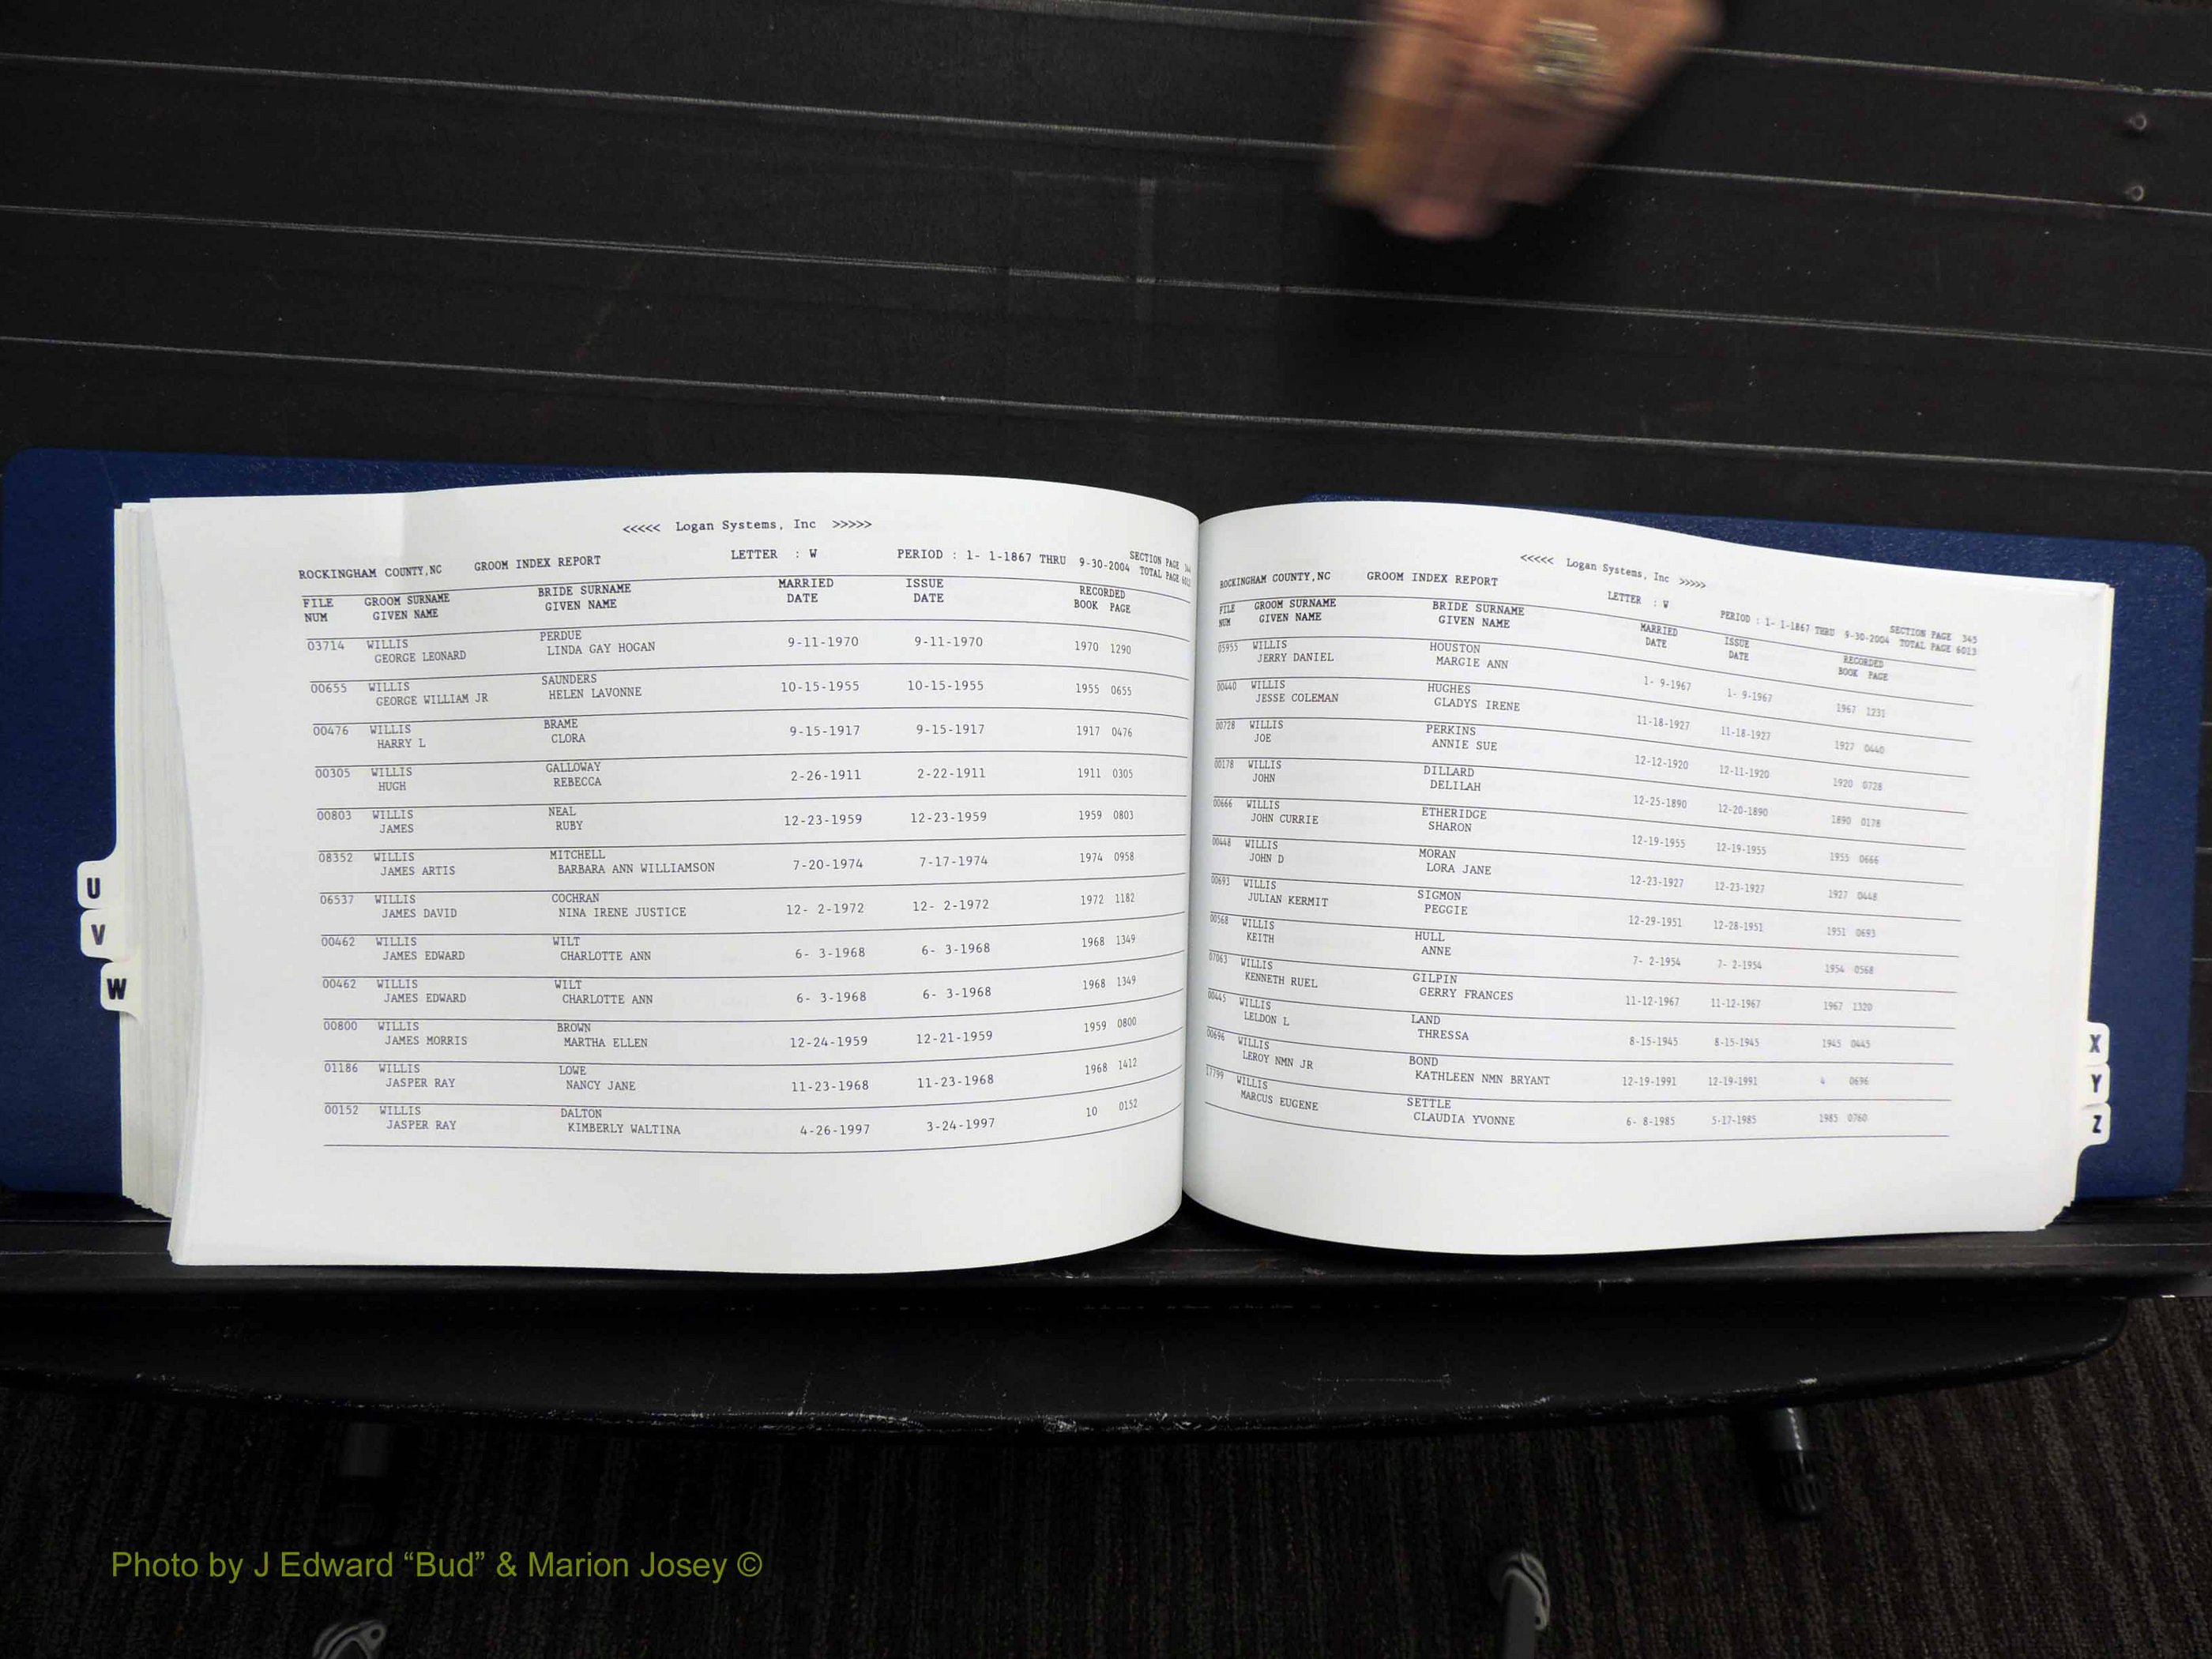 <<<<< Logan Systems, Inc >>>>>
ROCKINGHAM COUNTY,NC GROOM INDEX REPORT LETTER : W PERIOD : 1- 1-1867 THRU 9-30-2004 SECTION PAGE
TOTAL PAGE
FILE GROOM SURNAME BRIDE SURNAME MARRIED ISSUE RECORDED
NUM GIVEN NAME GIVEN NAME DATE DATE BOOK PAGE
03714 WILLIS PERDUE 9-11-1970 9-11-1970 1970 1290
GEORGE LEONARD LINDA GAY HOGAN
00655 WILLIS SAUNDERS 10-15-1955 10-15-1955 1955 0655
GEORGE WILLIAM JR HELEN LAVONNE
00476 WILLIS BRAME 9-15-1917 9-15-1917 1917 0476
HARRY L CLORA
00305 WILLIS GALLOWAY 2-26-1911 2-22-1911 1911 0305
HUGH REBECCA
00803 WILLIS NEAL 12-23-1959 12-23-1959 1959 0803
JAMES RUBY
08352 WILLIS MITCHELL 7-20-1974 7-17-1974 1974 0958
JAMES ARTIS BARBARA ANN WILLIAMSON
06537 WILLIS COCHRAN 12- 2-1972 12- 2-1972 1972 1182
JAMES DAVID NINA IRENE JUSTICE
00462 WILLIS WILT 6- 3-1968 6- 3-1968 1968 1349
JAMES EDWARD CHARLOTTE ANN
00462 WILLIS WILT 6- 3-1968 6- 3-1968 1968 1349
JAMES EDWARD CHARLOTTE ANN
00800 WILLIS BROWN 12-24-1959 12-21-1959 1959 0800
JAMES MORRIS MARTHA ELLEN
01186 WILLIS LOWE 11-23-1968 11-23-1968 1968 1412
JASPER RAY NANCY JANE
00152 WILLIS DALTON 4-26-1997 3-24-1997 10 0152
JASPER RAY KIMBERLY WALTINA
U
V
W
<<<<< Logan Systems, Inc >>>>>
ROCKINGHAM COUNTY,NC GROOM INDEX REPORT LETTER : W PERIOD : 1- 1-1867 THRU 9-30-2004 SECTION PAGE 345
TOTAL PAGE 6013
FILE GROOM SURNAME BRIDE SURNAME MARRIED ISSUE RECORDED
NUM GIVEN NAME GIVEN NAME DATE DATE BOOK PAGE
05955 WILLIS HOUSTON 1- 9-1967 1- 9-1967 1967 1231
JERRY DANIEL MARGIE ANN
00440 WILLIS HUGHES 11-18-1927 11-18-1927 1927 0440
JESSE COLEMAN GLADYS IRENE
00728 WILLIS PERKINS 12-12-1920 12-11-1920 1920 0728
JOE ANNIE SUE
00178 WILLIS DILLARD 12-25-1890 12-20-1890 1890 0178
JOHN DELILAH
00666 WILLIS ETHERIDGE 12-19-1955 12-19-1955 1955 0666
JOHN CURRIE SHARON
00448 WILLIS MORAN 12-23-1927 12-23-1927 1927 0448
JOHN D LORA JANE
00693 WILLIS SIGMON 12-29-1951 12-28-1951 1951 0693
JULIAN KERMIT PEGGIE
00568 WILLIS HULL 7- 2-1954 7- 2-1954 1954 0568
KEITH ANNE
07063 WILLIS GILPIN 11-12-1967 11-12-1967 1967 1320
KENNETH RUEL GERRY FRANCES
00445 WILLIS LAND 8-15-1945 8-15-1945 1945 0445
LELDON L THRESSA
00696 WILLIS BOND 12-19-1991 12-19-1991 4 0696
LEROY NMN JR KATHLEEN NMN BRYANT
17799 WILLIS SETTLE 6- 8-1985 5-17-1985 1985 0760
MARCUS EUGENE CLAUDIA YVONNE
X
Y
Z
Photo by J Edward “Bud” & Marion Josey ©